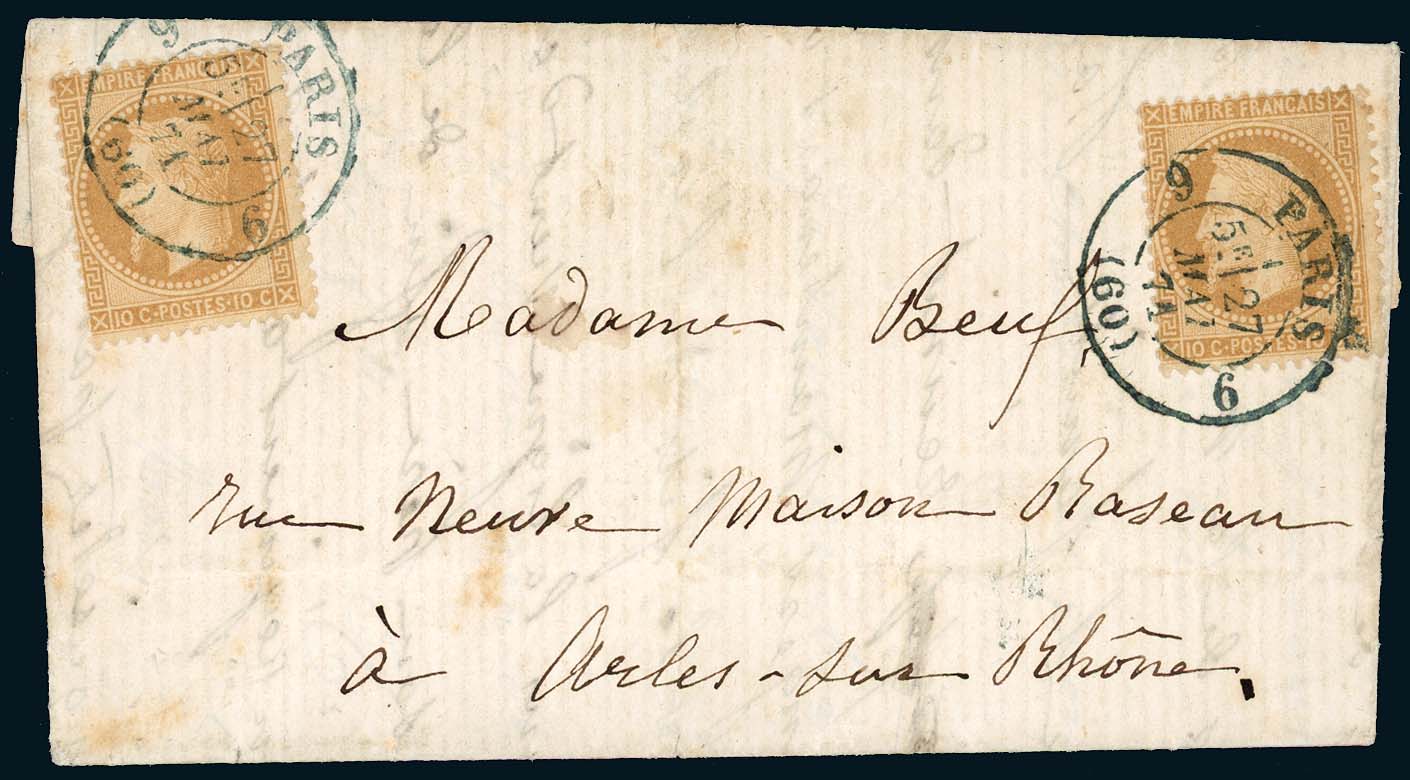 EMPIRE FRANÇAIS
10 C·POSTES·10 C
PARIS
9
5E/27
MAI
71
(60)
9
EMPIRE FRANÇAIS
10 C·POSTES·10
PARIS
9
5E/27
MAI
71
(60)
9
Madame Beuf
rue Neuve Maison Raseau
à Arles-sur Rhône.